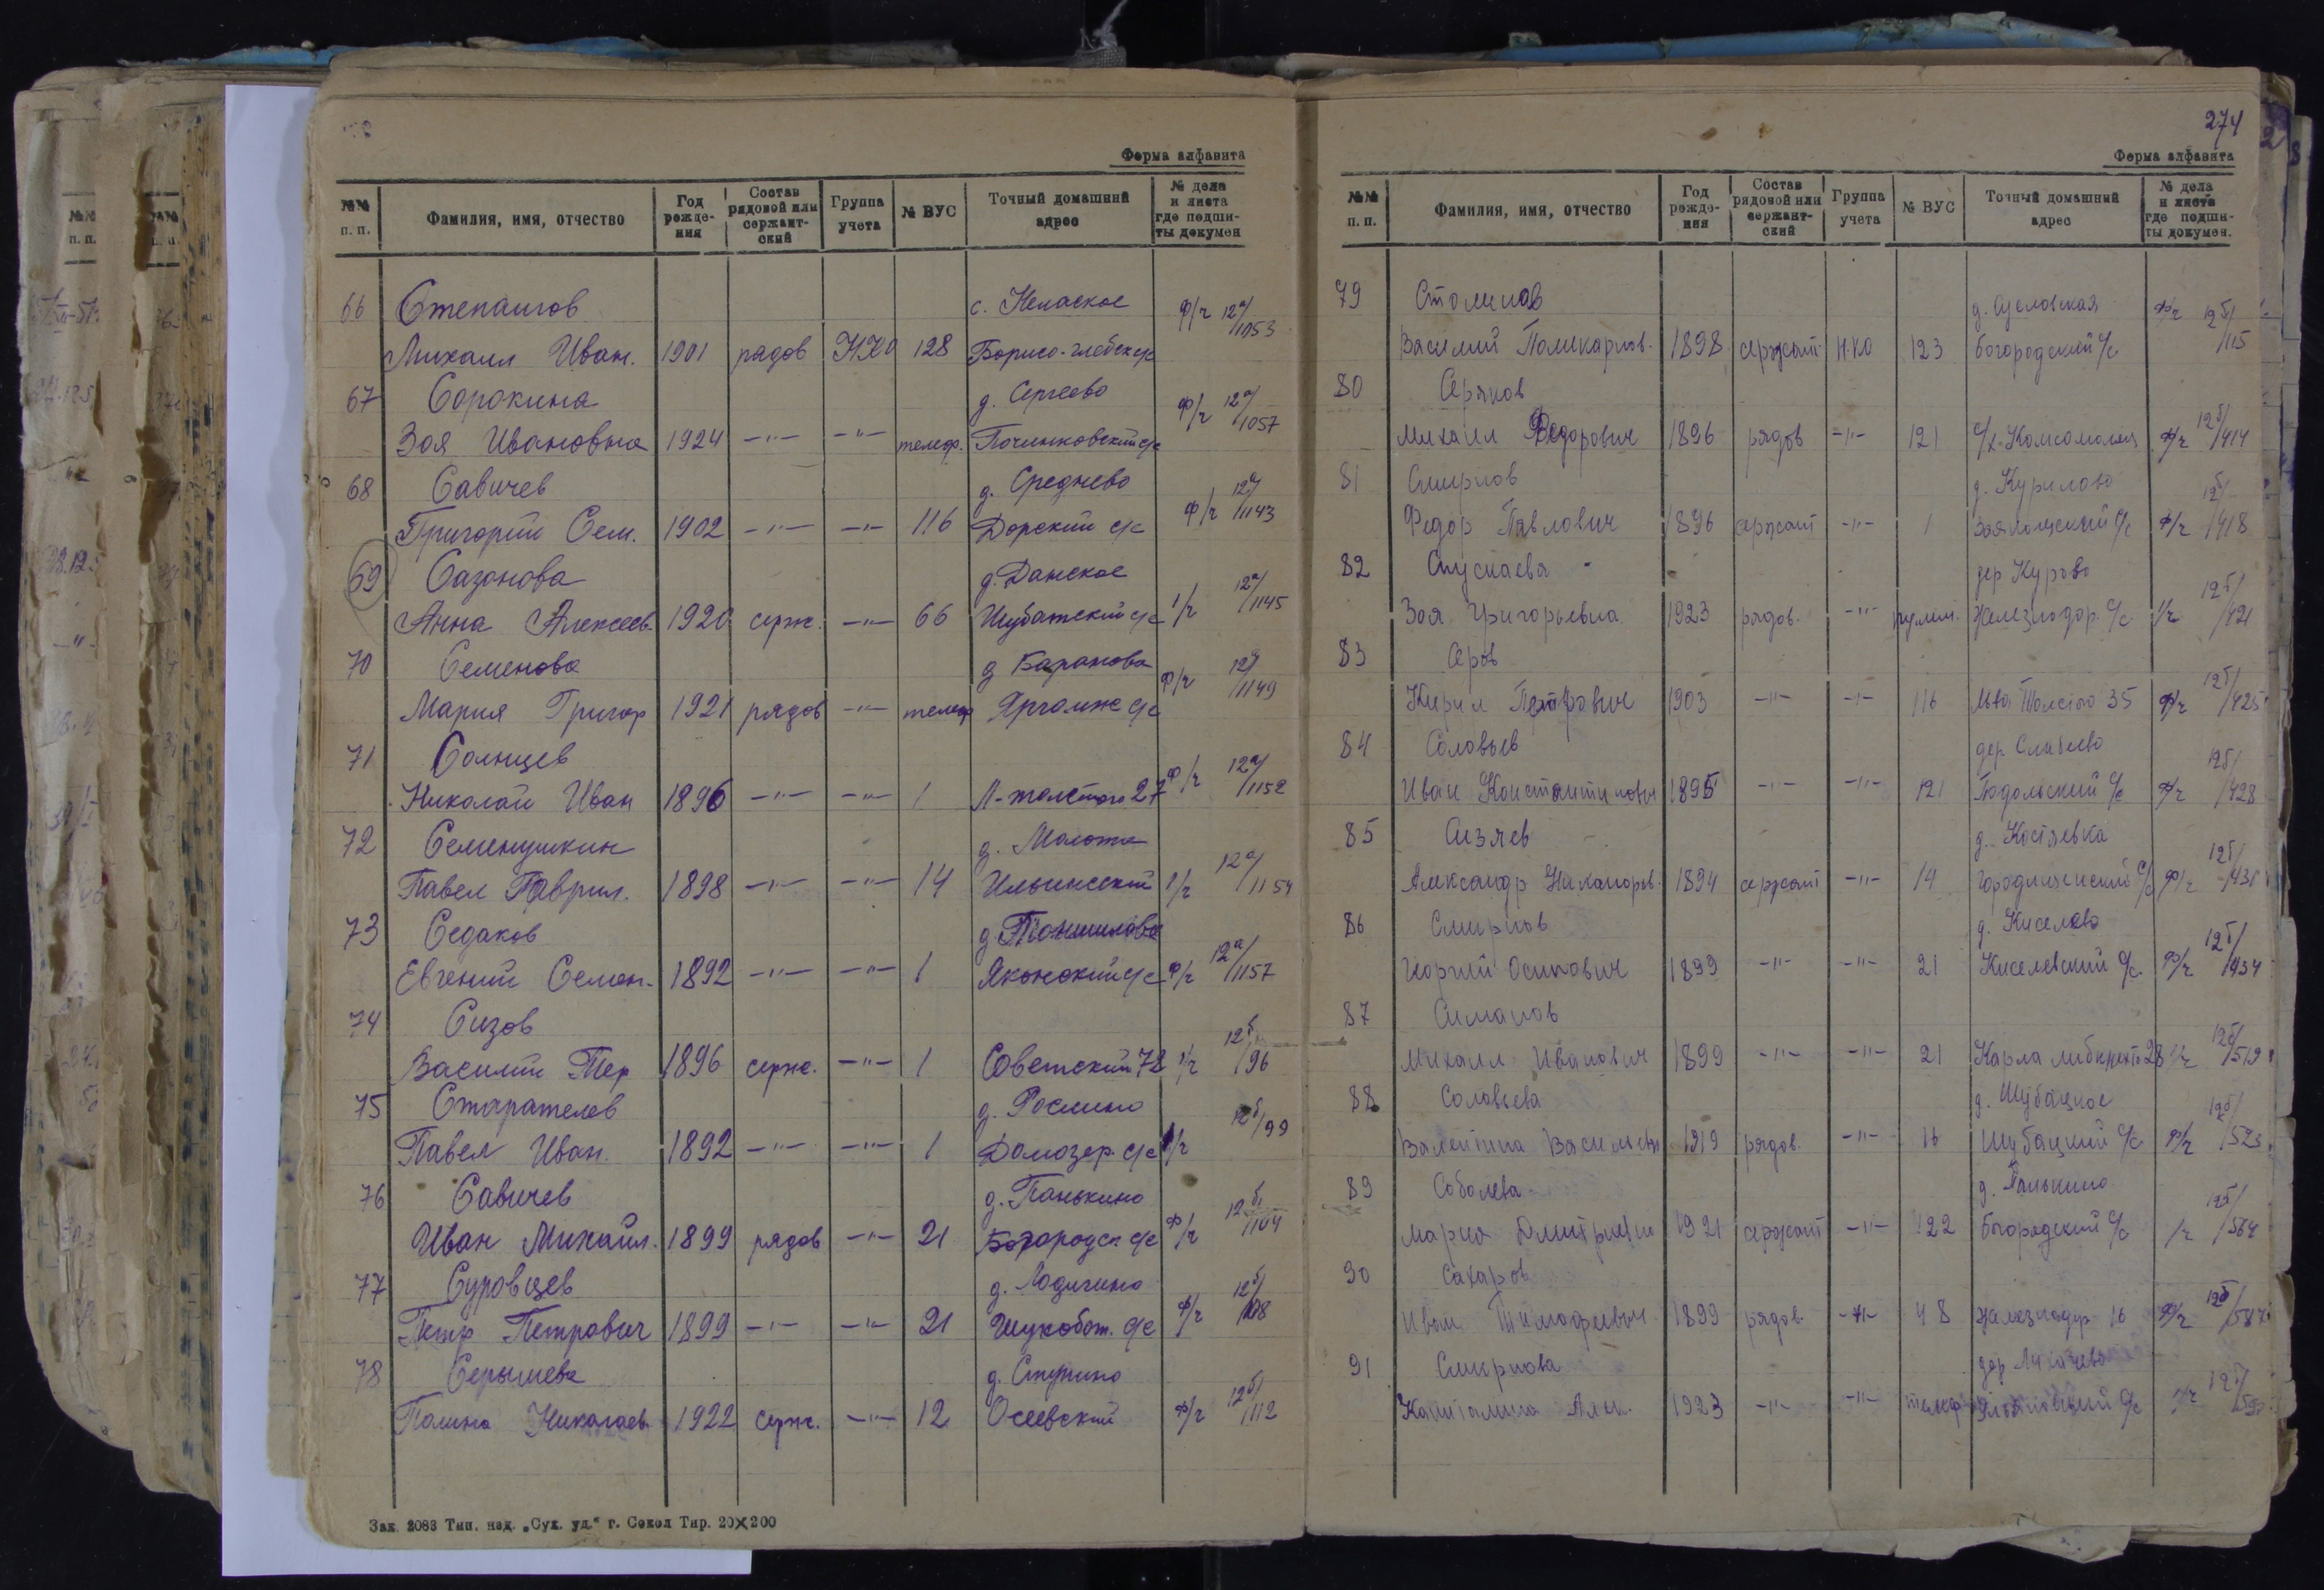 Форма алфавита
№№ п. п. Фамилия, имя, отчество Год рождения Состав рядовой или сержантский Группа учета № ВУС Точный домашний адрес № дела и листа где подшиты докумен
66 Степангов с. Нелаское ф/ч 12а/1053
Михаил Иван. 1901 рядов НКО 128 Борисо-глебск с/с
67 Сорокина д. Сергеево ф/ч 12а/1057
Зоя Ивановна 1924 -"- -"- телеф. Починковский с/с
68 Савичев д. Среднево ф/ч 12а/1143
Григорий Сем. 1902 -"- -"- 116 Дорский с/с
69 Сазонова д. Данское 12а/1145
Анна Алексеев. 1920 серж. -"- 66 Шубатский с/с 1/ч
70 Семенова д Баранова ф/ч 12а/1149
Мария Григор 1921 рядов -"- телеф Яргомж с/с
71 Солнцев ф/ч 12а/1152
Николай Иван 1896 -"- -"- 1 Л-толстого 27
72 Семенушкин д. 12а/1154
Павел Гаврил. 1898 -"- -"- 14 Ильинский 1/ч
73 Седаков д. 12а/1157
Евгений Семен. 1892 -"- -"- 1 с/с ф/ч
74 Сизов 12б/96
Василий Тер 1896 серж. -"- 1 Советский 78 1/ч
75 Старателев д. Рослино 12б/99
Павел Иван. 1892 -"- -"- 1 Домозер. с/с 1/ч
76 Савичев д. Панькино 12б/104
Иван Михаил. 1899 рядов -"- 21 Богородск с/с ф/ч
77 Суровцев д. Лодыгино 12б/108
Петр Петрович 1899 -"- -"- 21 Шухобот. с/с ф/ч
78 Серышева д. Ступино 12б/112
Полина Николаев. 1922 серж. -"- 12 Осеевский ф/ч
Зак. 2083 Тип. изд. „Сух. уд.“ г. Сокол Тир. 20х200
274
Форма алфавита
№№ п. п. Фамилия, имя, отчество Год рождения Состав рядовой или сержантский Группа учета № ВУС Точный домашний адрес № дела и листа где подшиты докумен.
79 Столилов д. ф/ч 12б/115
Василий Поликарпов. 1898 сержант Н.КО 123 Богородский с/с
80 Серяков
Михаил Федорович 1896 рядов -"- 121 с/х-Комсомолец ф/ч 12б/414
81 Смирнов д. Курилово 12б/418
Федор Павлович 1896 сержант -"- 1 с/с ф/ч
82 Спускаева дер Курово 12б/421
Зоя Григорьевна 1923 рядов. -"- пулем. Железнодор. с/с 1/ч
83 Серов
Кирил Петрович 1903 -"- -"- 116 Льва Толстого 35 ф/ч 12б/425
84 Соловьев дер. 12б/428
Иван Константинович 1895 -"- -"- 121 Подольский с/с ф/ч
85 Сизяев д. Костяевка 12б/431
Александр Никаноров. 1894 сержант -"- 14 Городищенский с/с ф/ч
86 Смирнов д. Киселево 12б/434
Георгий Осипович 1899 -"- -"- 21 Киселевский с/с ф/ч
87 Симанов
Михаил Иванович 1899 -"- -"- 21 Карла либкнехта 28 1/ч 12б/519
88 Соловьева д. Шубацкое 12б/523
Валентина Васильевн 1919 рядов. -"- 16 Шубацкий с/с ф/ч
89 Соболева д. Панькино 12б/564
Мария Дмитриевна 1921 сержант -"- 122 Богородский с/с 1/ч
90 Сахаров
Иван Тимофеевич 1899 рядов. -"- 48 Железнодор 16 ф/ч 12б/587
91 Смирнова дер
Капиталина Алек. 1923 -"- -"- телеф с/с 1/ч